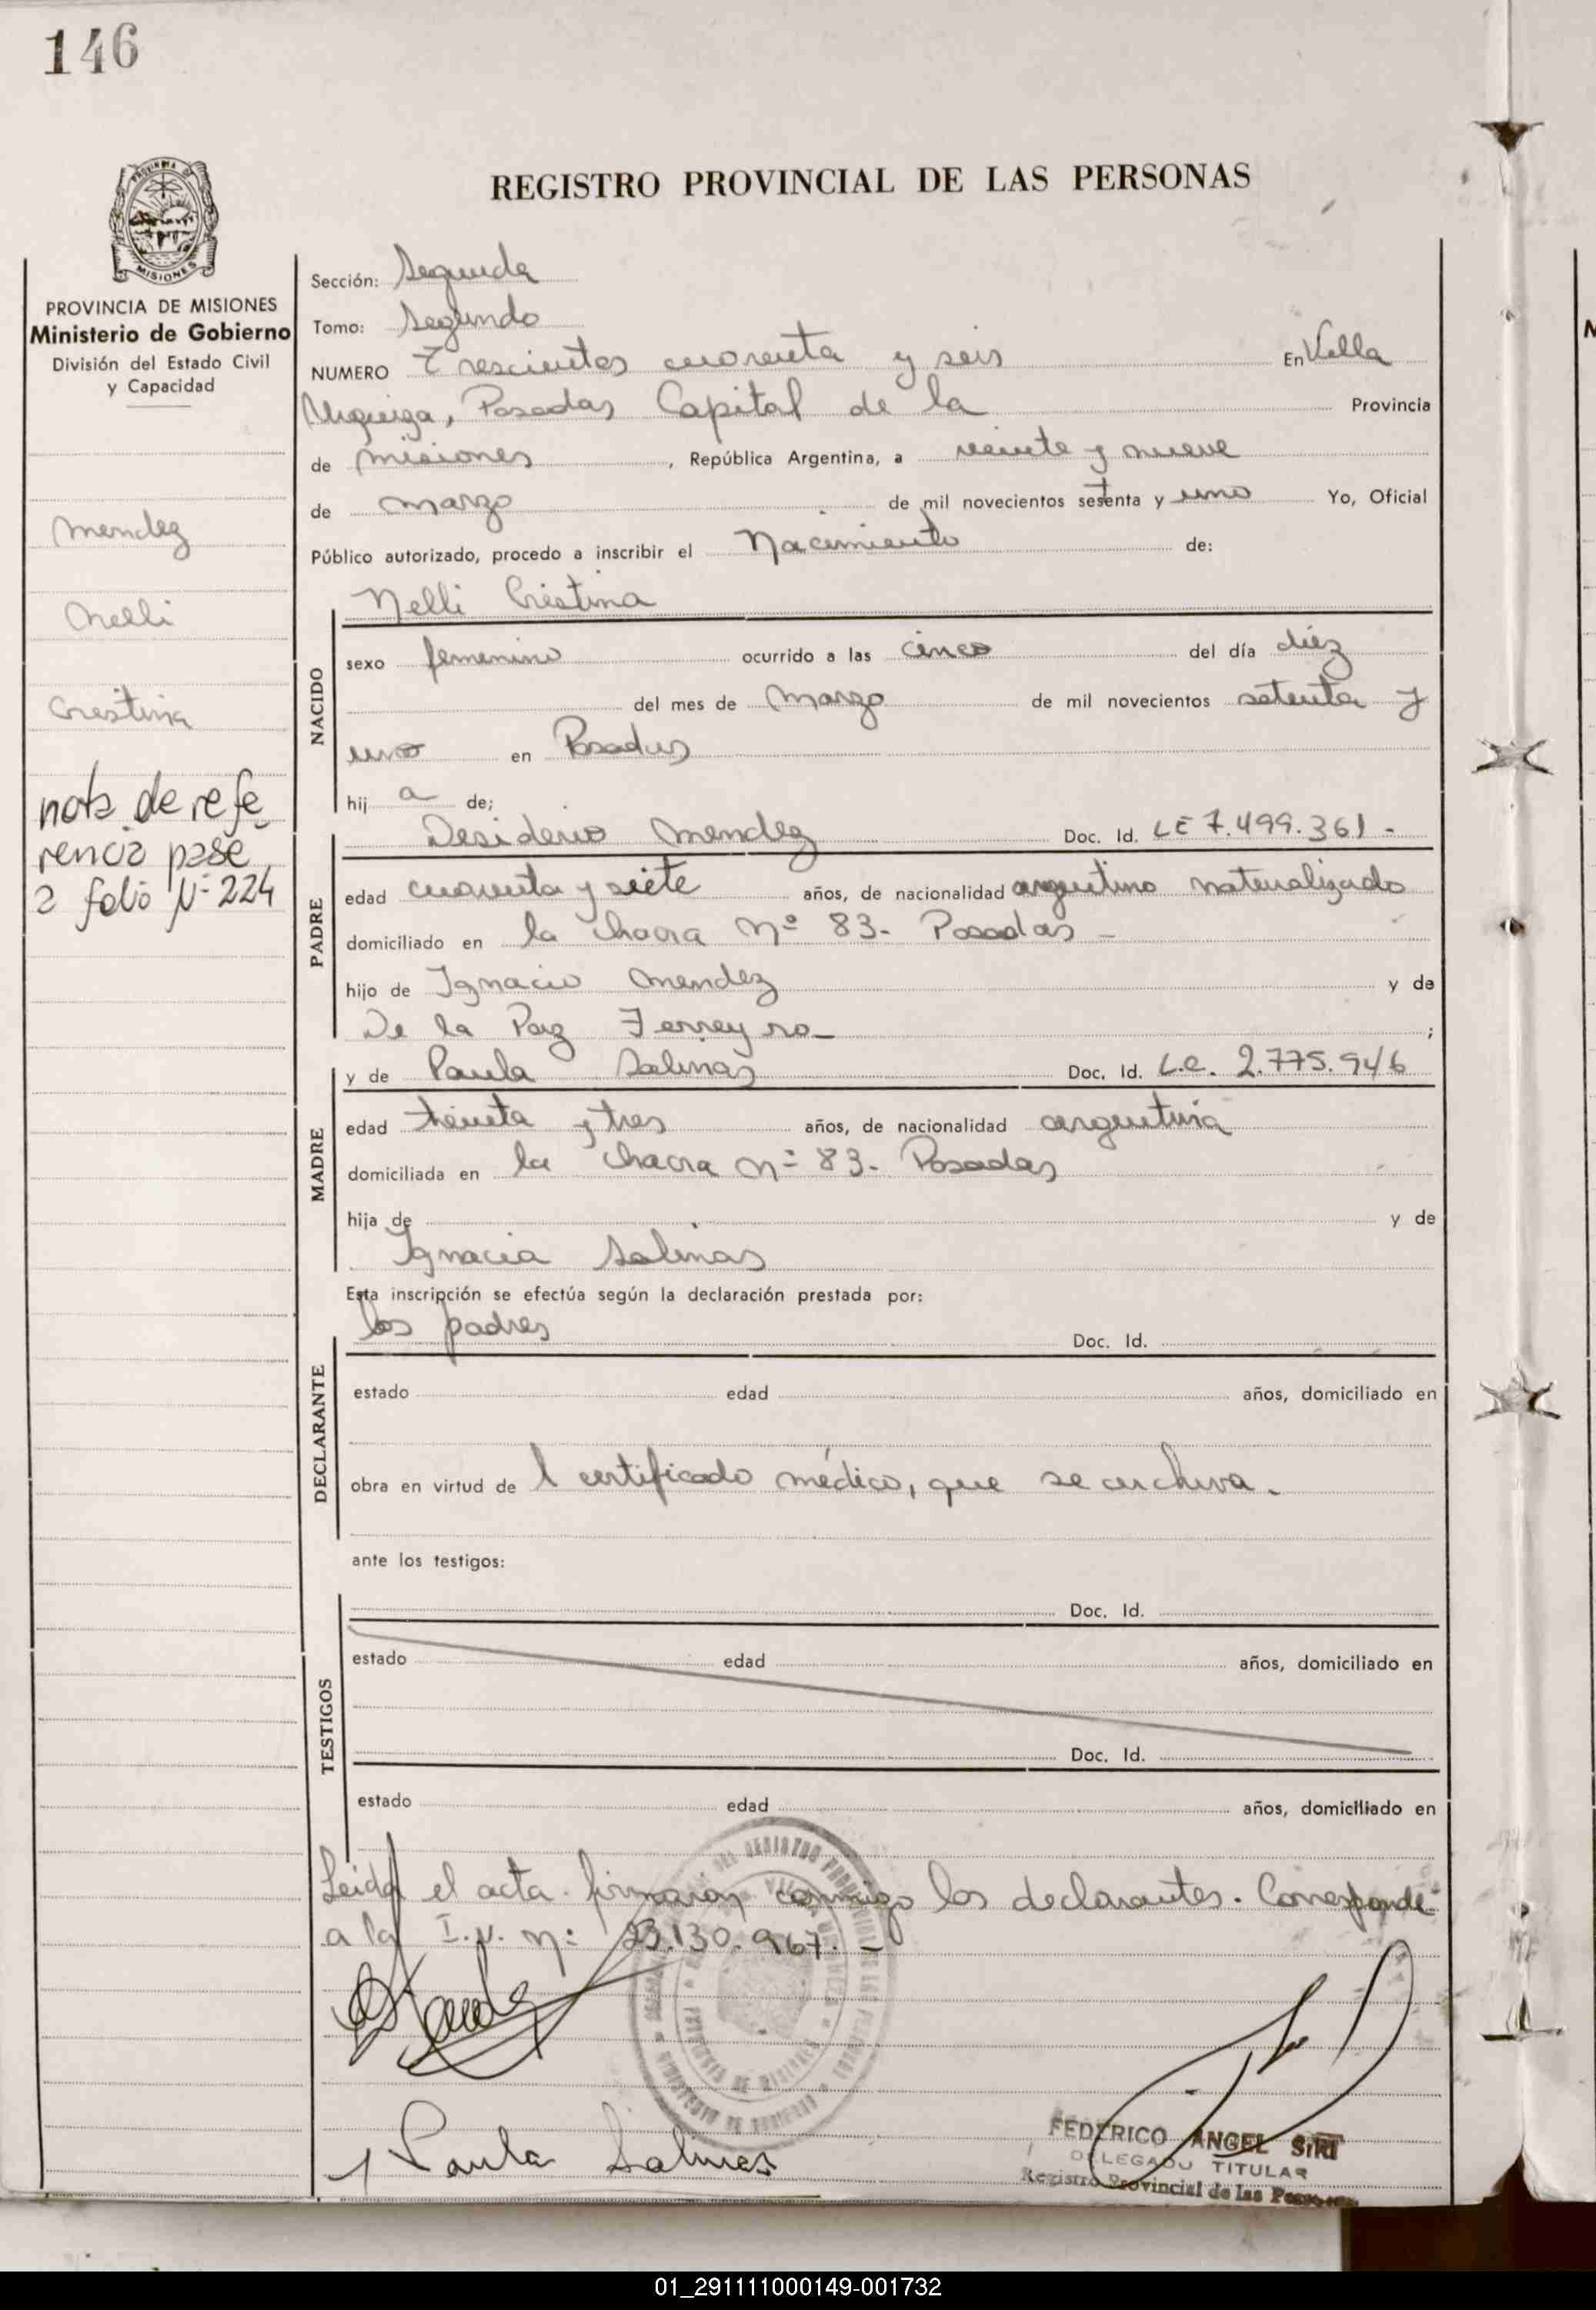 146
PROVINCIA DE MISIONES
Ministerio de Gobierno
División del Estado Civil
y Capacidad
Mendez
Nelli
Cristina
nota de refe
rencia pase
a folio Nº 224
REGISTRO PROVINCIAL DE LAS PERSONAS
Sección: Segunda
Tomo: Segundo
NUMERO Trescientos cuarenta y seis En Villa
Urquiza, Posadas Capital de la Provincia
de Misiones, República Argentina, a veinte y nueve
de Marzo de mil novecientos setenta y uno Yo, Oficial
Público autorizado, procedo a inscribir el Nacimiento de:
Nelli Cristina
NACIDO
sexo femenino ocurrido a las cinco del día diez
del mes de Marzo de mil novecientos setenta y
uno en Posadas
hij a de;
Desiderio Mendez Doc. Id. LE 7.499.361 -
PADRE
edad cuarenta y siete años, de nacionalidad argentino naturalizado
domiciliado en la chacra Nº 83- Posadas -
hijo de Ignacio Mendez y de
De la Paz Ferreyra- ;
y de Paula Salinas Doc. Id. L.C. 2.775.946
MADRE
edad treinta y tres años, de nacionalidad argentina
domiciliada en la chacra Nº 83- Posadas
hija de y de
Ignacia Salinas
Esta inscripción se efectúa según la declaración prestada por:
los padres Doc. Id.
DECLARANTE
estado edad años, domiciliado en
obra en virtud de l certificado médico, que se archiva.
ante los testigos:
Doc. Id.
TESTIGOS
estado edad años, domiciliado en
Doc. Id.
estado edad años, domiciliado en
Leida el acta firmaron conmigo los declarantes. Corresponde
a la I.N. Nº 23.130.967. -
Paula Salinas
FEDERICO ANGEL SIRI
DELEGADO TITULAR
Registro Provincial de las Personas
01_291111000149-001732